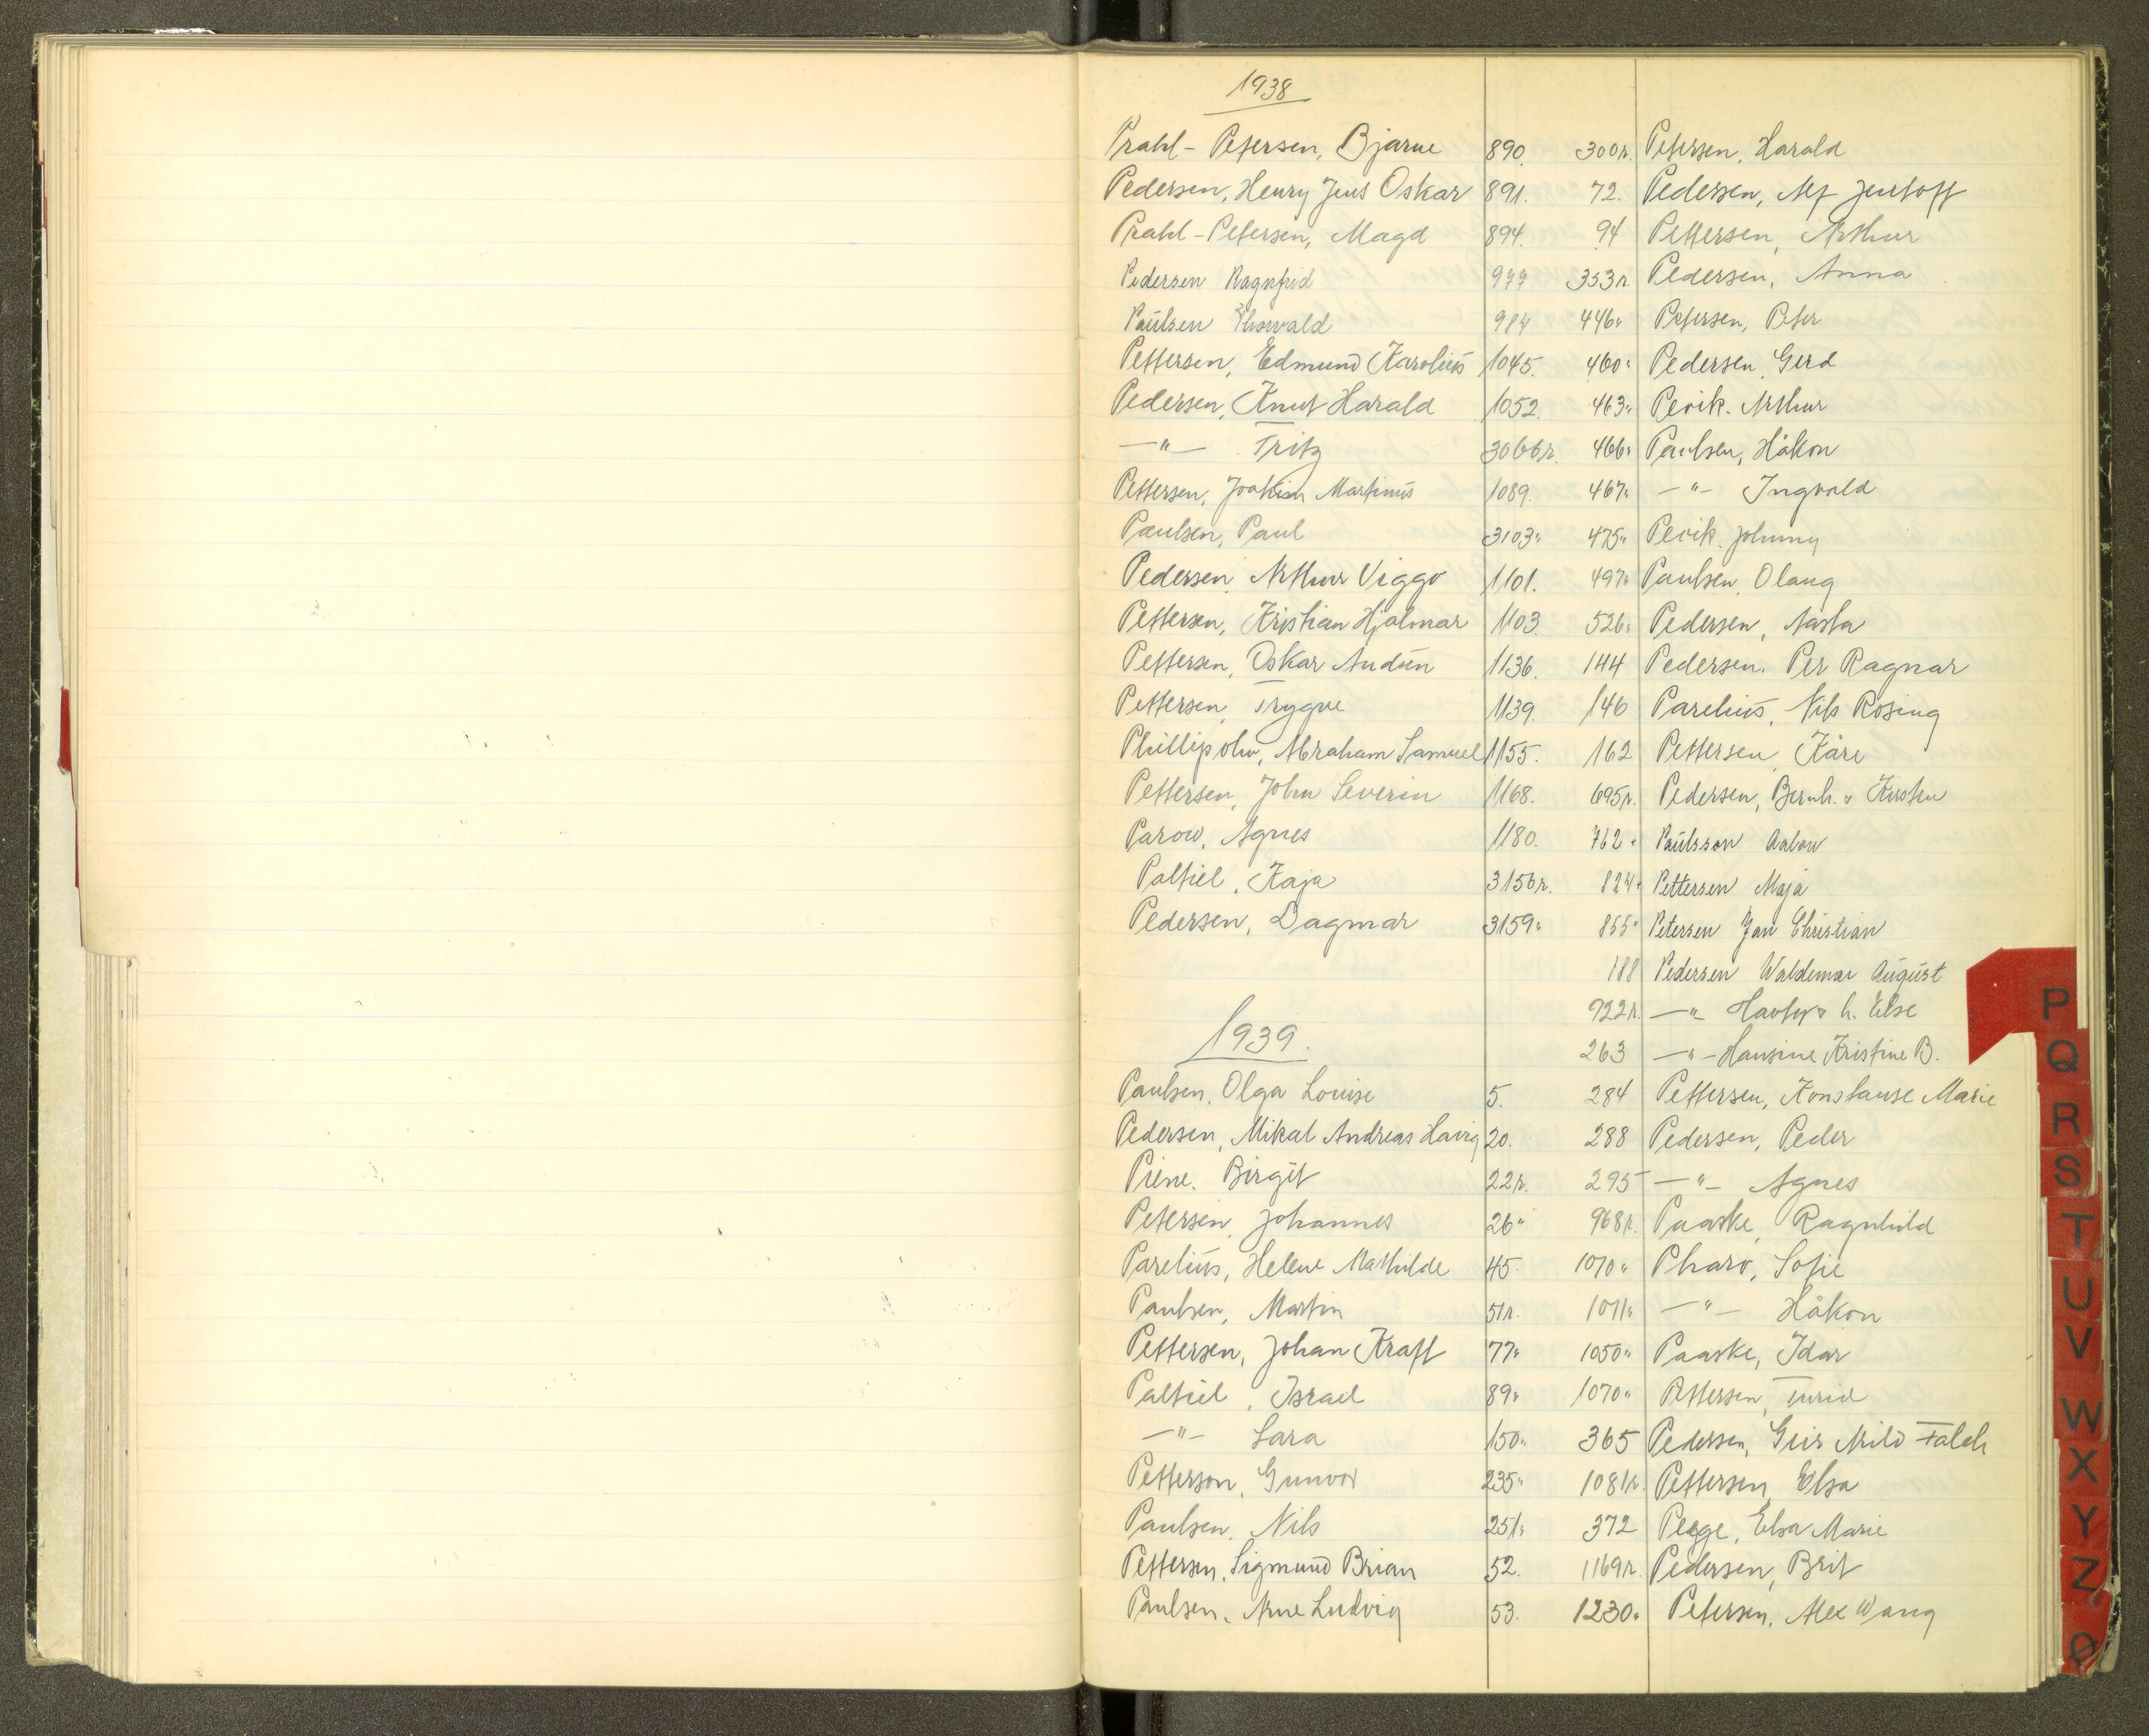 1938
Prahl-Petersen, Bjarne 890.
Pedersen, Henry Jens Oskar 891.
Prahl-Petersen, Magd 894.
Pedersen Ragnfrid 977
Paulsen Thorvald 984
Pettersen, Edmund Karolius 1045.
Pedersen, Knut Harald 1052.
—"— Fritz 3066r.
Pettersen, Joakim Martinus 1089.
Paulsen, Paul 3103"
Pedersen, Arthur Viggo 1101.
Pettersen, Kristian Hjalmar 1103.
Pettersen, Oskar Audun 1136.
Pettersen, Trygve 1139.
Phillipsohn, Abraham Samuel 1155.
Pettersen, John Severin 1168.
Parow, Agnes 1180.
Paltiel, Kaja 3156r.
Pedersen, Dagmar 3159"
1939.
Paulsen, Olga Louise 5.
Pedersen, Mikal Andreas Havig 20.
Piene. Birgit 22r.
Petersen, Johannes 26"
Parelius, Helene Mathilde 45.
Paulsen, Martin 51r.
Pettersen, Johan Kraft 77"
Paltiel, Israel 89"
—"— Sara 150"
Petterson, Gunvor 235"
Paulsen, Nils 251"
Pettersen, Sigmund Brian 52.
Paulsen, Arne Ludvig 53.
300r. Petersen, Harald
72. Pedersen, Alf Jentoft
94 Pettersen, Arthur
353r. Pedersen, Anna
446" Petersen, Peter
460" Pedersen, Gerd
463" Pevik. Arthur
466" Paulsen, Håkon
467" —"— Ingvald
475" Pevik, Johnny
497" Paulsen, Olaug
526" Pedersen, Aasta
144 Pedersen. Per Ragnar
146 Parelius, Nils Rosing
162 Pettersen, Kåre
695r. Pedersen, Bernh. & Kirsten
762" Paulsson
824" Pettersen Maja
855" Petersen Jan Christian
188 Pedersen Waldemar August
922r. —"— h. Else
263 —"— Hansine Kristine B.
284 Pettersen, Konstanse Marie
288 Pedersen, Peder
295 —"— Agnes
968r. Paaske, Ragnhild
1070" Pharo, Sofie
1071" —"— Håkon
1050" Paaske, Idar
1070" Pettersen, Turid
365 Pedersen, Geir Arild Falch
1081r. Pettersen, Elsa
372 Elsa Marie
1169r. Pedersen, Brit
1230" Petersen, Alex Wang
P
Q
R
S
T
U
V
W
X
Y
Z
Ø